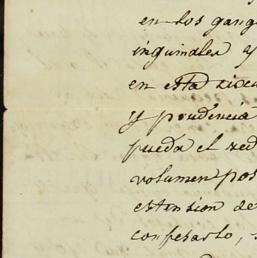 en los gang
inguinales y
en esta
y prudencia
pueda el red
volumen pos
estension de
confesarlo,